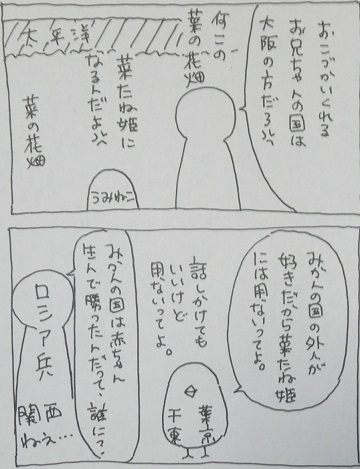 おこづかいくれる
お兄ちゃんの国は
大阪の方だろ
何この
菜の花畑
太平洋
菜たね姫に
なるんだよ
うみねこ
菜の花畑
みかんの国の外人が
好きだから菜たね姫
には用ないってよ。
話しかけても
いいけど
用ないってよ。
千葉
東京
みかんの国は赤ちゃん
生んで勝ったんだって、誰に?
ロシア兵
関西
ねぇ…